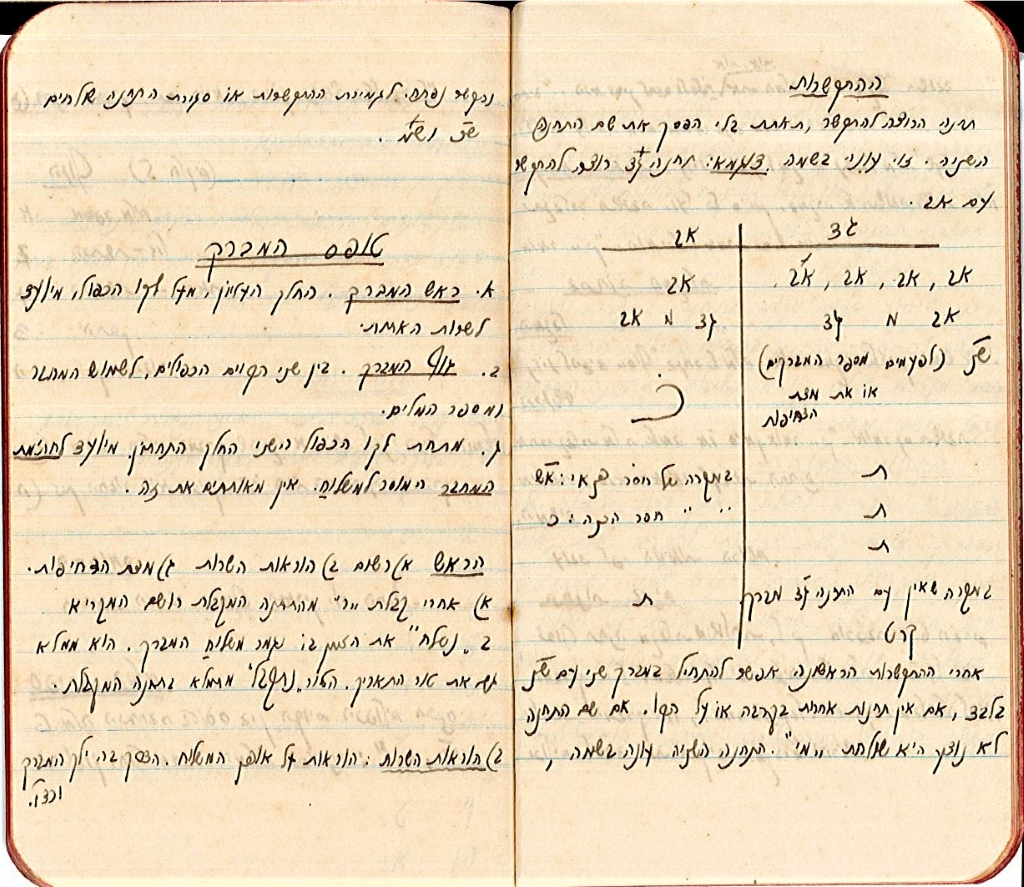 ההתקשרות
תחנה הרוצה להתקשר, תאתת בלי הפסק את שם התחנה
השניה. זוי עונה בשמה. דוגמא: תחנה גד רוצה להתקשר
עם אב.
גד אב
אב, אב, אב, אב. אב
אב מ גד גד מ אב
(לפעמים מספר המברקים)
או את מדת
הדחיפות
ת במקרה של חסר פנאי:
ת " " חסר הכנה: כ
ת
במקרה שאין עם התחנה גד מברק ת
קרט
אחרי ההתקשרות הראשונה אפשר להתחיל במברק שני עם
בלבד, אם אין תחנות אחרות בקרבה או על הקו. אם שם התחנה
לא נודע היא שולחת "מי". התחנה השניה עונה בשמה,
והקשר נפתח. לגמירת ההתקשרות או סגירת התחנה שולחים
טופס המברק
א. ראש המברק. החלק העליון, מעל לקו הכפול, מיועד
לשרות האתת.
ב. גוף המברק. בין שני הקוים הכפולים, לשמוש המחבר
ומספר המלים.
ג. מתחת לקו הכפול השני החלק התחתון, מיועד לחתימת
המחבר המוסר למשלוח. אין מאותתים את זה.
הראש א) רשום ב) הוראות השרות ג) מדת הדחיפות.
א) אחרי קבלת "ר" מהתחנה המקבלת רושם המקריא
ב"נשלח" את הזמן בו נגמר משלוח המברק. הוא ממלא
גם את טור התאריך. הטור "נתקבל" מתמלא בתחנה המקבלת.
ב) הוראות השרות: הוראות על אופן המשלוח. הדרך בה ילך המברק
וכדו'.